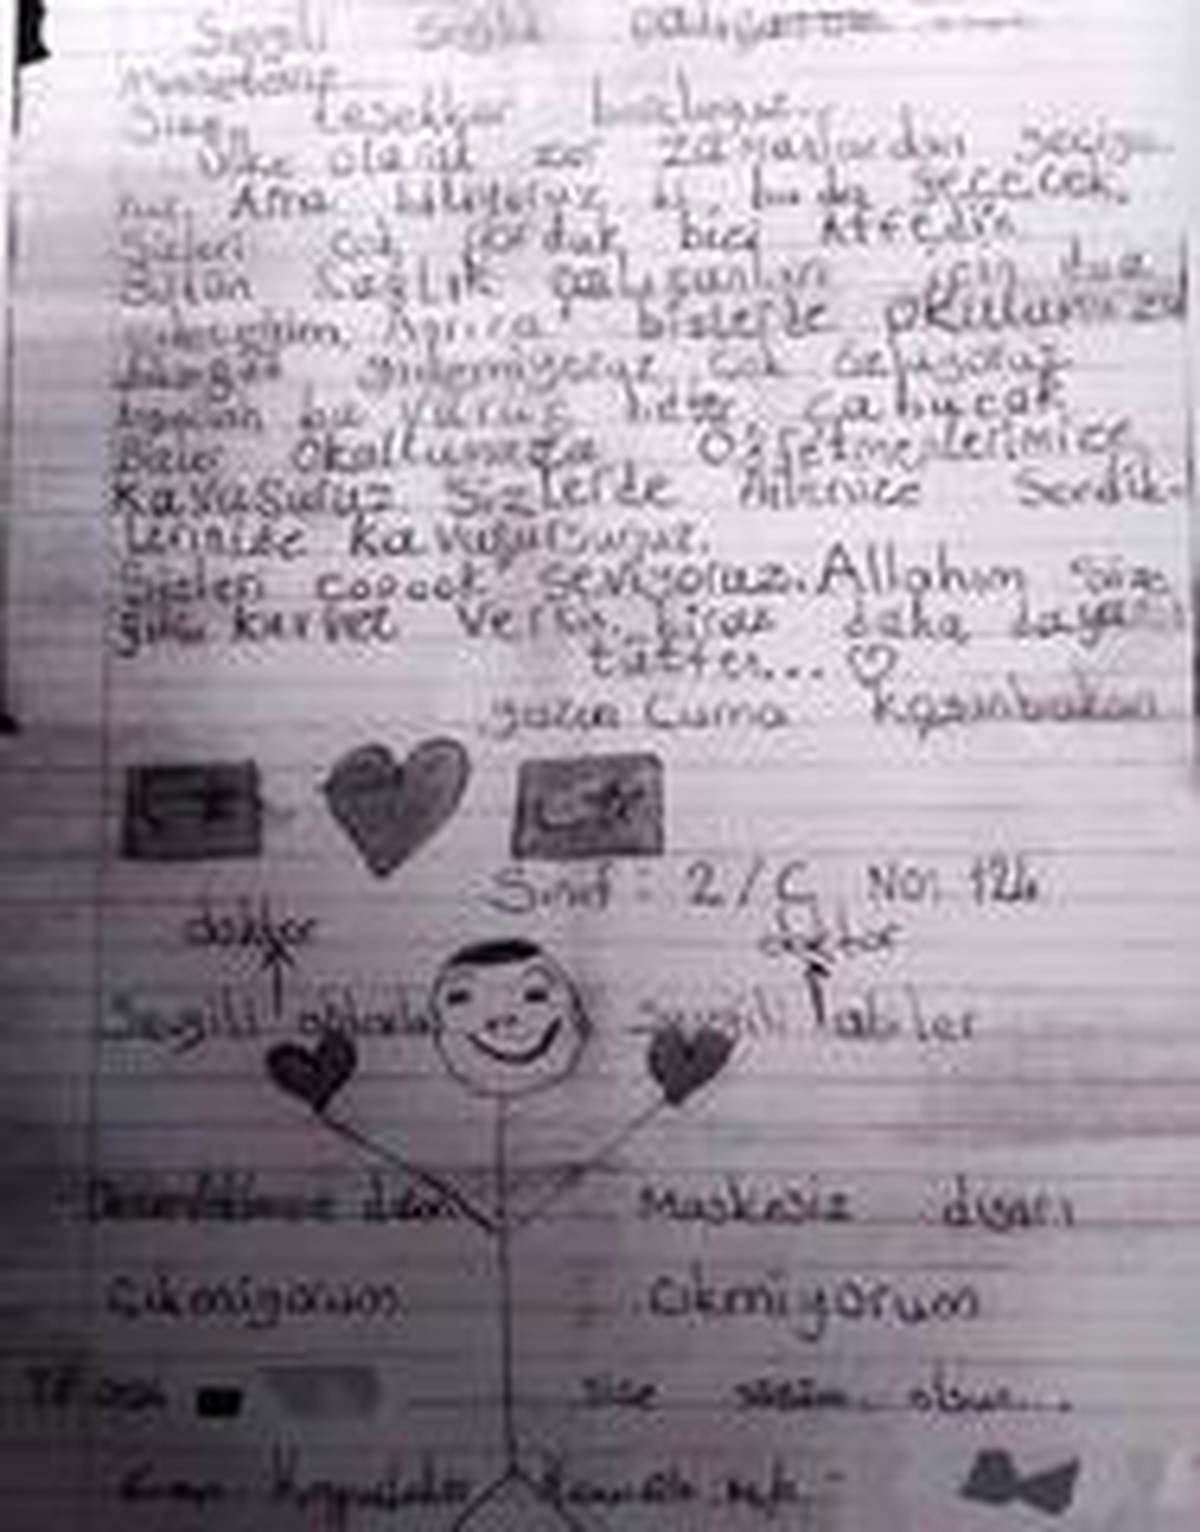 Sevgili sağlık çalışanı
Size teşekkür borcluyuz.
Ülke olarak zor zamanlardan geçiyo
ruz. Ama biliyoruz ki bu da geçecek.
Sizleri çok yorduk bizi Affedin
Bütün Sağlık çalışanları için dua
edeceğim. Ayrıca bizlerde okulumuza
gidemiyoruz çok özlüyoruz
bu Virüs biter çabucak
Bizler Okullumuza Öğretmenlerimize
Kavuşuruz Sizlerde Ailenize Sevdik-
lerinize Kavuşursunuz.
Sizleri çooook seviyoruz. Allahım size
güç kuvvet Versin. biraz daha dayanı
lütfen... ♡
yazan Cuma
Sınıf: 2/C No: 124
doktor doktor
Sevgili ablalar Sevgili abiler
Maskesiz dışarı
Çıkmıyorum Çıkmıyorum
size sözüm olsun...